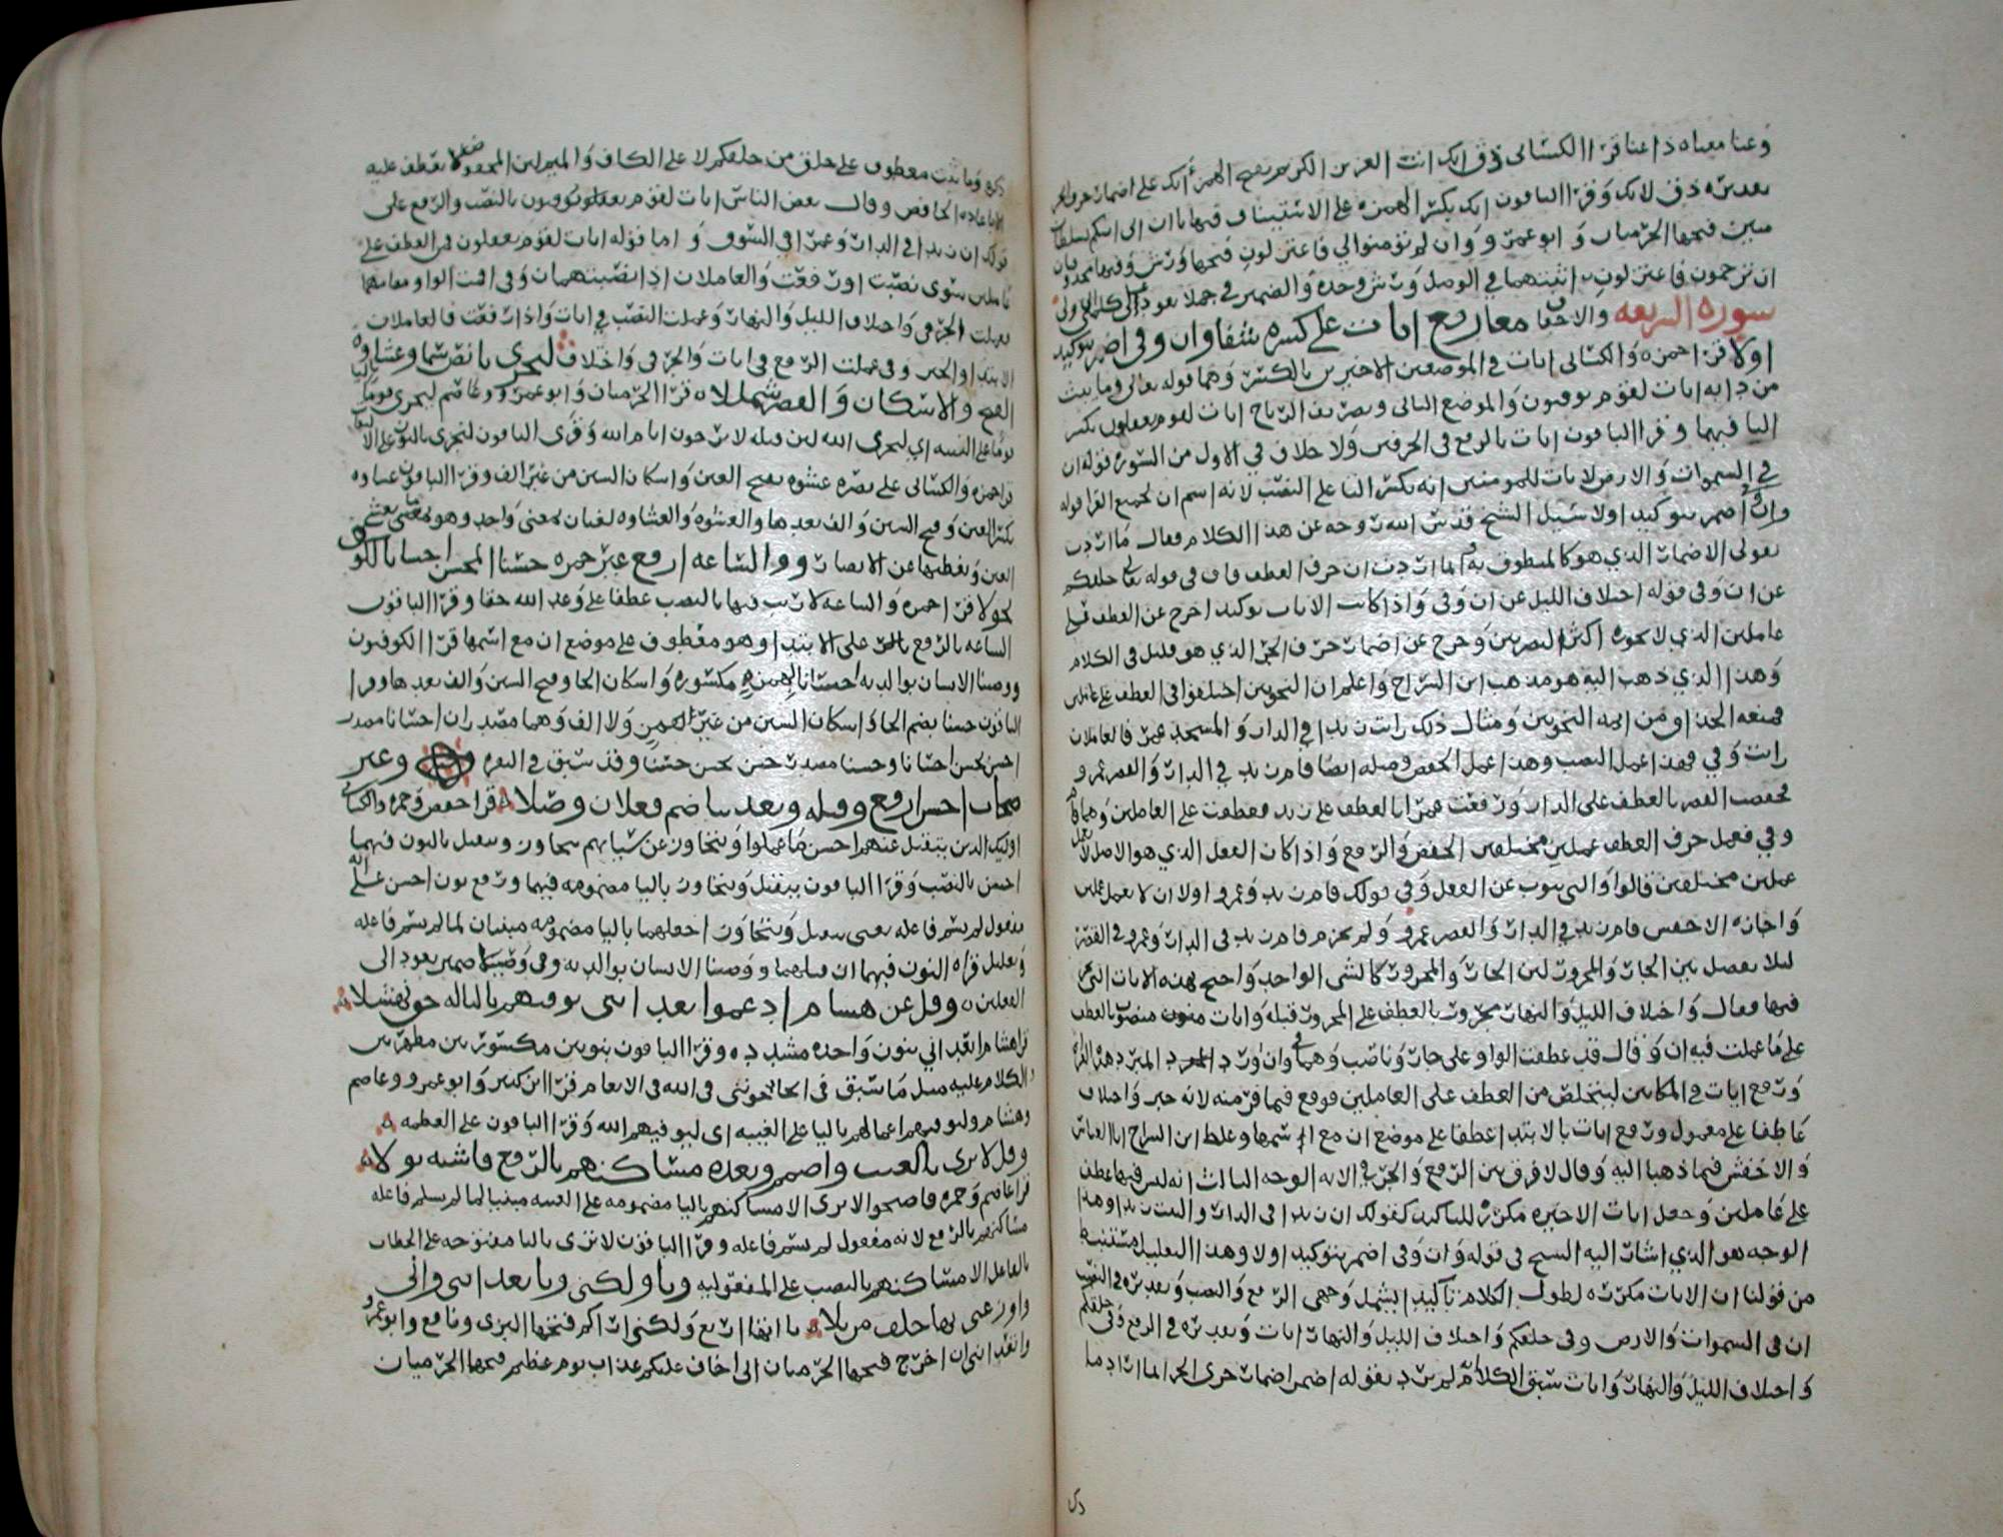 وعنا معناه ذا عنا قرا الكسائى ذق انك انت العزيز الكريم بفتح الهمزة انك على اضمار حرف الجر
بعد ذق لانك وقرا الباقون انك بكسر الهمزة على الاستيناف فيها ياان انى اتيكم بسلطان
مبين فتحها الحرميان وابو عمرو وان لم تومنوا لي فاعتزلون فتحها ورش وفيها محذوفتان
ان ترجمون فاعتزلون اثبتهما في الوصل ورش وحده والضمير في حملا يعود الى
سورة الشريعه والاحقاف معا رفع ايات على كسره شفا وان وفي اضمر بتوكيد
اولا قرا حمزه والكسائى ايات في الموضعين الاخيرين بالكسر وهما قوله تعالى وما يبث
من دابه ايات لقوم يوقنون والموضع الثانى وتصريف الرياح ايات لقوم يعقلون بكسر
التا فيهما وقرا الباقون ايات بالرفع في الحرفين ولا خلاف في الاول من السورة قوله ان
في السموات والارض لايات للمومنين انه بكسر التا على النصب لانه اسم ان لجميع القرا قوله
وان وفي اضمر بتوكيد اولا سئل الشيخ قدس الله روحه عن هذا الكلام فقال ما اردت
بقولى الاضمار الذي هو كالمنطوق به وانما اردت ان حرف العطف ناب فى قوله تعالى وفي خلقكم
عن ان وفي قوله اختلاف الليل عن ان وفي واذا كانت الايات توكيدا خرج عن العطف على
عاملين الذي لا يجوزه اكثر البصريين وخرج عن اضمار حرف الجر الذي هو قليل في الكلام
وهذا الذي ذهب اليه هو مذهب ابن السراج واعلم ان النحويين اختلفوا في العطف على عاملين
فمنعه الحذاق من ايمة النحويين ومثال ذلك رايت زيدا في الدار والمسجد عمرا فالعاملان
رايت وفي فهذا عمل النصب وهذا عمل الخفض ومثله ايضا قام زيد في الدار والقصر عمرو
فخفضت القصر بالعطف على الدار ورفعت عمرا بالعطف على زيد فعطفت على العاملين وهما قام
وفي فعمل حرف العطف عملين مختلفين الخفض والرفع واذا كان الفعل الذي هو الاصل لا يعمل
عملين مختلفين قالوا والتى ينوب عن الفعل وفي قولك قام زيد وعمرو اولا ان لا يعمل عملين
واجازه الاخفش قام زيد في الدار والقصر عمرو ولم يجز قام زيد في الدار وعمرو في القصر
ليلا يفصل بين الجار والمجرور لان الجار والمجرور كالشى الواحد واحتج بهذه الايات التي
فيها فقال واختلاف الليل والنهار مجرور بالعطف على المجرور قبله وايات منصوب بالعطف
على ما عملت فيه ان وقال قد عطفت الواو على جار وناصب وهما في وان
ورفع ايات في المكانين ليتخلص من العطف على العاملين فوقع فيما فر منه لانه جر واختلاف
عاطفا على معمول ورفع ايات بالابتدا عطفا على موضع ان مع اسمها وغلط ابن السراج ابا العباس
والاخفش فيما ذهبا اليه وقال لا فرق بين الرفع والجر في الايه الوجه الثالث انه ليس فيها عطف
على عاملين وجعل ايات الاخيره مكررة للتاكيد كقولك ان زيدا في الدار والبيت زيدا وهذا
الوجه هو الذي اشار اليه الشيخ في قوله وان وفي اضمر بتوكيد اولا وهذا التعليل مستنبط
من قولنا ان الايات مكررة لطول الكلام تاكيدا ليشمل وجهى الرفع والنصب وتقديره في النصب
ان في السموات والارض وفي خلقكم واختلاف الليل والنهار ايات وتقديره في الرفع وفي خلقكم
واختلاف الليل والنهار وايات سبق الكلام لم يرد بقوله اضمر اضمار حرف الجر انما اراد ما
ذكره وما يبث معطوف على خلق من خلقكم لا على الكاف والميم لان المخفوض لا يعطف عليه
الا باعادة الخافض وقال بعض الناس ايات لقوم يعقلون يوقنون بالنصب والرفع على
قولك ان زيدا في الدار وعمرا في السوق واما قوله ايات لقوم يعقلون فمن العطف على
عاملين سوى نصبت او رفعت والعاملان اذا نصبت هما ان وفي اقيمت الواو مقامهما
فعملت الجر في واختلاف الليل والنهار وعملت النصب في ايات واذا رفعت فالعاملان
الابتدا والجر وفي عملت الرفع في ايات والجر في واختلاف لنجزى يا نص سما وغشاوه
الفتح والاسكان والقصر شملا قرا الحرميان وابو عمرو وعاصم ليجزى قوما باليا
قوما على الغيبه اي ليجزى الله لان قبله لا يرجون ايام الله وقرى الباقون لنجزى بالنون على الالتفات
قرا حمزه والكسائى على بصره غشوه بفتح الغين واسكان الشين من غير الف وقرا الباقون غشاوه
بكسر الغين وفتح الشين والف بعدها والغشوه والغشاوه لغتان بمعنى واحد وهو ما يغشى
العين ويغطيها عن الابصار ووالساعه ارفع غير حمزه حسنا المحسن احسانا لكوف
تحولا قرا حمزه والساعه لا ريب فيها بالنصب عطفا على وعد الله حقا وقرا الباقون
الساعه بالرفع على الابتدا وهو معطوف على موضع ان مع اسمها قرا الكوفيون
ووصينا الانسان بوالديه احسانا بهمزة مكسوره واسكان الحا وفتح السين والف بعدها وقرا
الباقون حسنا بضم الحا واسكان السين من غير الهمز ولا الف وهما مصدران احسانا مصدر
احسن يحسن احسانا وحسنا مصدر حسن يحسن حسنا وقد سبق في البقره وغير
صحاب احسن ارفع وقبله وبعد بيا ضم فعلان وصلا قرا حفص وحمزه والكسائى
اوليك الذين نتقبل عنهم احسن ما عملوا ونتجاوز عن سياتهم نتجاوز ونتقبل بالنون فيهما
احسن بالنصب وقرا الباقون يتقبل ويتجاوز باليا مضمومه فيهما ورفع نون احسن على انه
مفعول لم يسم فاعله يعنى يتقبل ويتجاوز اجعلهما باليا مضمومه مبنيان لما لم يسم فاعله
وتعليل قراه النون فيهما ان قبلهما ووصينا الانسان بوالديه وفي وصلا ضمير يعود الى
الفعلين وقل عن هشام ادغموا تعد انني نوفيهم باليا له حق نهشلا
قرا هشام اتعداني بنون واحده مشدده وقرا الباقون بنونين مكسورتين مظهرتين
والكلام عليه مثل ما سبق في اتحاجونني في الله في الانعام قرا ابن كثير وابو عمرو وعاصم
وهشام وليوفيهم اعمالهم باليا على الغيبه اى ليوفيهم الله وقرا الباقون على العظمه
وقل لا يرى بالغيب واضمم وبعده مساكنهم بالرفع فاشيه نولا
قرا عاصم وحمزه فاصبحوا لا يرى الا مساكنهم باليا مضمومه على الغيبه مبنيا لما لم يسم فاعله
مساكنهم بالرفع لانه مفعول لم يسم فاعله وقرا الباقون لا ترى بالتا مفتوحه على الخطاب
بالفاعل الا مساكنهم بالنصب على المفعوليه ويا ولكنى ويا تعد اننى وانى
واوزعنى بها خلف من بلا يا اتها اربع ولكنى اراكم فتحها البزى ونافع وابو عمرو
واتعداننى ان اخرج فتحها الحرميان انى اخاف عليكم عذاب يوم عظيم فتحها الحرميان